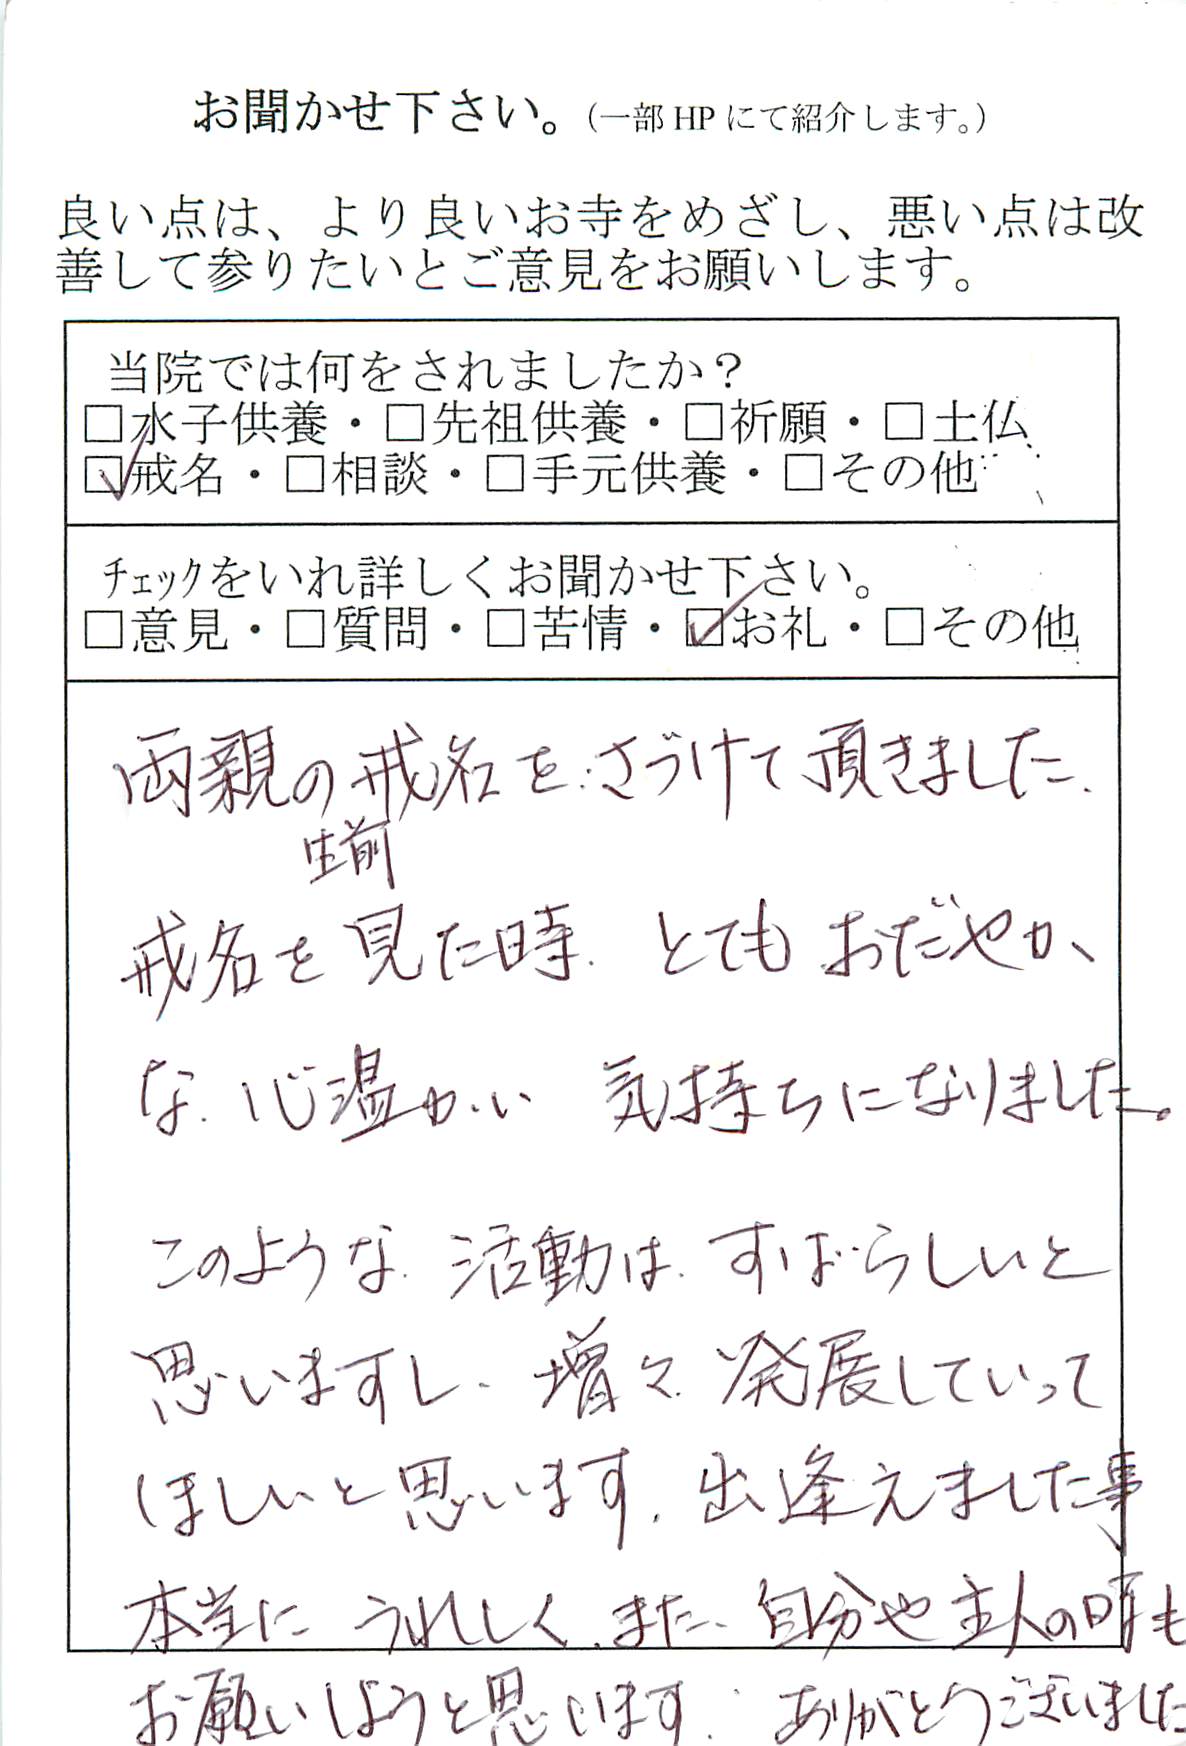 お聞かせ下さい。（一部 HP にて紹介します。）
良い点は、より良いお寺をめざし、悪い点は改
善して参りたいとご意見をお願いします。
当院では何をされましたか？
□水子供養・□先祖供養・□祈願・□土仏
☑戒名・□相談・□手元供養・□その他
ﾁｪｯｸをいれ詳しくお聞かせ下さい。
□意見・□質問・□苦情・☑お礼・□その他
両親の戒名を、さづけて頂きました、
生前
戒名を見た時、とてもおだやか
な、心温かい 気持ちになりました。
このような、活動は、すばらしいと
思いますし、増々、発展していって
ほしいと思います、出逢えました事
本当に うれしく、また、自分や主人の時も
お願いしようと思います、ありがとうございました